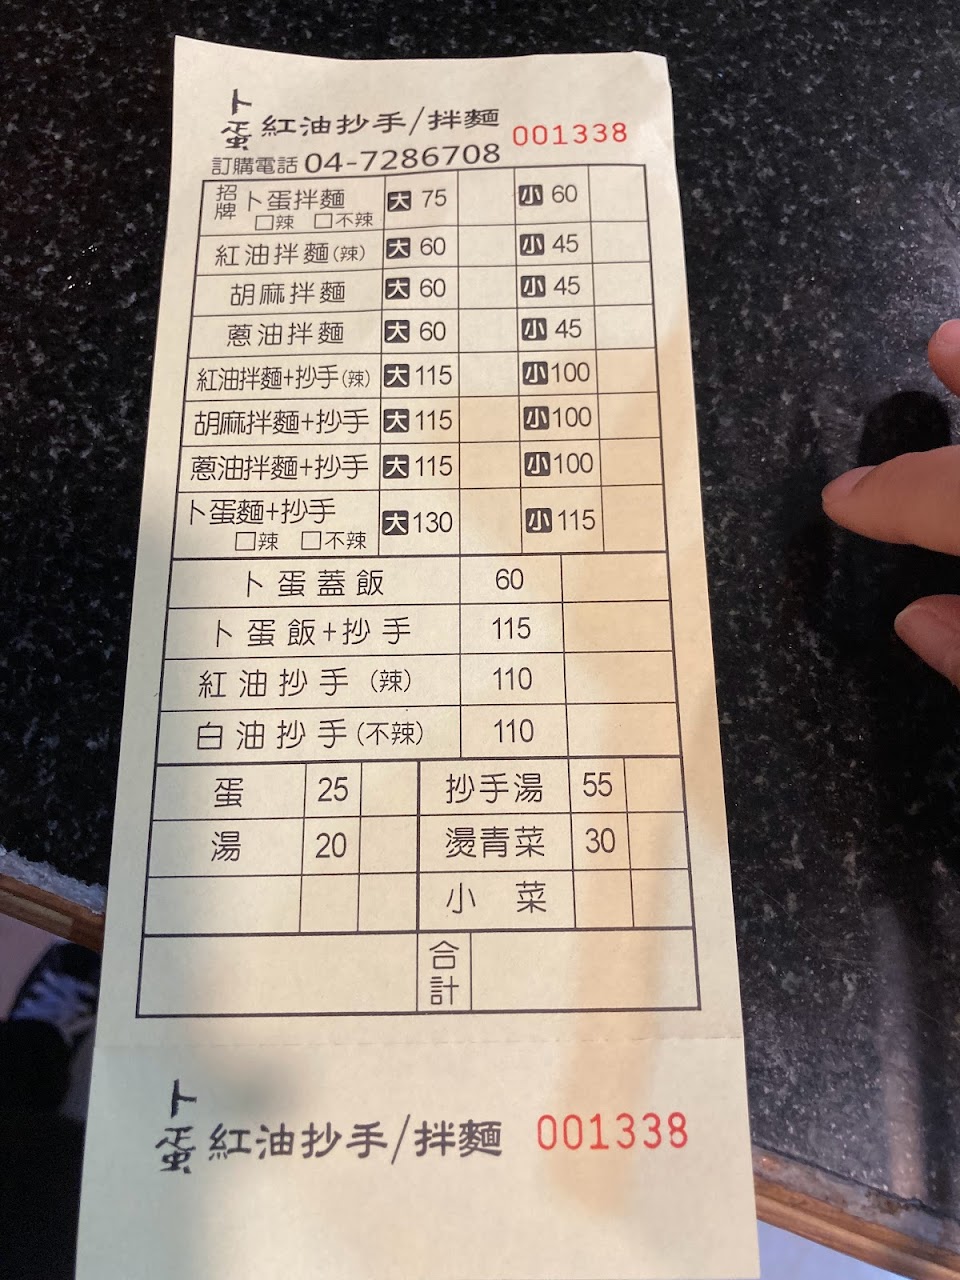 卜蛋 紅油抄手/拌麵 001338
訂購電話 04-7286708
招牌 卜蛋拌麵 大 75 小 60
□辣 □不辣
紅油拌麵(辣) 大 60 小 45
胡麻拌麵 大 60 小 45
蔥油拌麵 大 60 小 45
紅油拌麵+抄手(辣) 大 115 小 100
胡麻拌麵+抄手 大 115 小 100
蔥油拌麵+抄手 大 115 小 100
卜蛋麵+抄手 大 130 小 115
□辣 □不辣
卜蛋蓋飯 60
卜蛋飯+抄手 115
紅油抄手(辣) 110
白油抄手(不辣) 110
蛋 25 抄手湯 55
湯 20 燙青菜 30
小菜
合計
卜蛋 紅油抄手/拌麵 001338